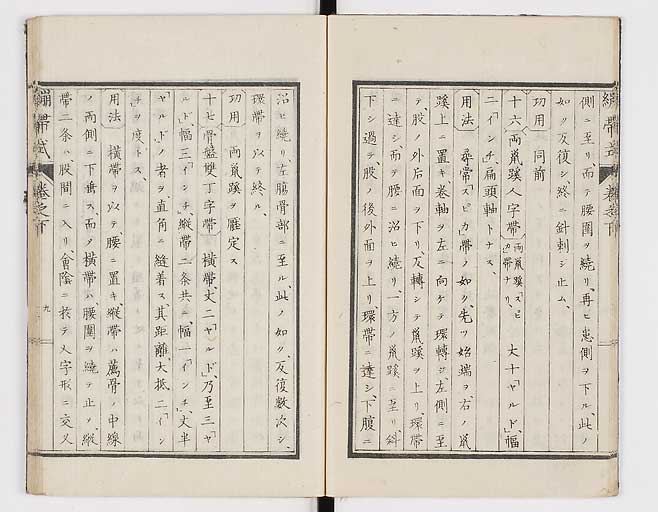 繃帶式 卷之下
側ニ至リ、而テ腰圍ヲ繞リ、再ヒ患側ヲ下ル、此ノ
如ク反復シ終ニ針刺シ止ム、
功用 同前
十六兩鼠蹊人字帶 兩鼠蹊スピカ帶ナリ、 丈十「ヤルド」、幅
二「インチ」、扁頭軸トナス、
用法 尋常「スピカ」帶ノ如ク、先ツ始端ヲ、右ノ鼠
蹊上ニ置キ、卷軸ヲ左ニ向ケテ環轉シ、左側ニ至
テ、股ノ外后面ヲ下リ、反轉シテ鼠蹊ヲ上リ、環帶
ニ達シ、而テ腰ニ沿ヒ繞リ、一方ノ鼠蹊ニ至リ、斜
下シ過テ、股ノ後外面ヲ上リ、環帶ニ達シ、下腹ニ
沿ヒ繞リ、左腹骨部ニ至ル、此ノ如ク、反復數次シ、
環帶ヲ以テ終ル、
功用 兩鼠蹊ヲ壓定ス
十七骨盤雙丁字帶 橫帶、丈二「ヤルド」、乃至三「ヤ
ルド」、幅三「インチ」、縱帶二条共ニ、幅一「インチ」、丈半
「ヤルド」ノ者ヲ、直角ニ縫着ス、其距離、大抵二「イン
チ」ヲ度トス、
用法 橫帶ヲ以テ、腰ニ置キ、縱帶ハ薦骨ノ中線
ノ兩側ニ下垂ス、而メ橫帶ハ、腰圍ヲ繞テ止ヲ、縱
帶二条ハ、股間ニ入リ、會陰ニ於テ人字形ニ交叉
繃帶式 卷之下
九